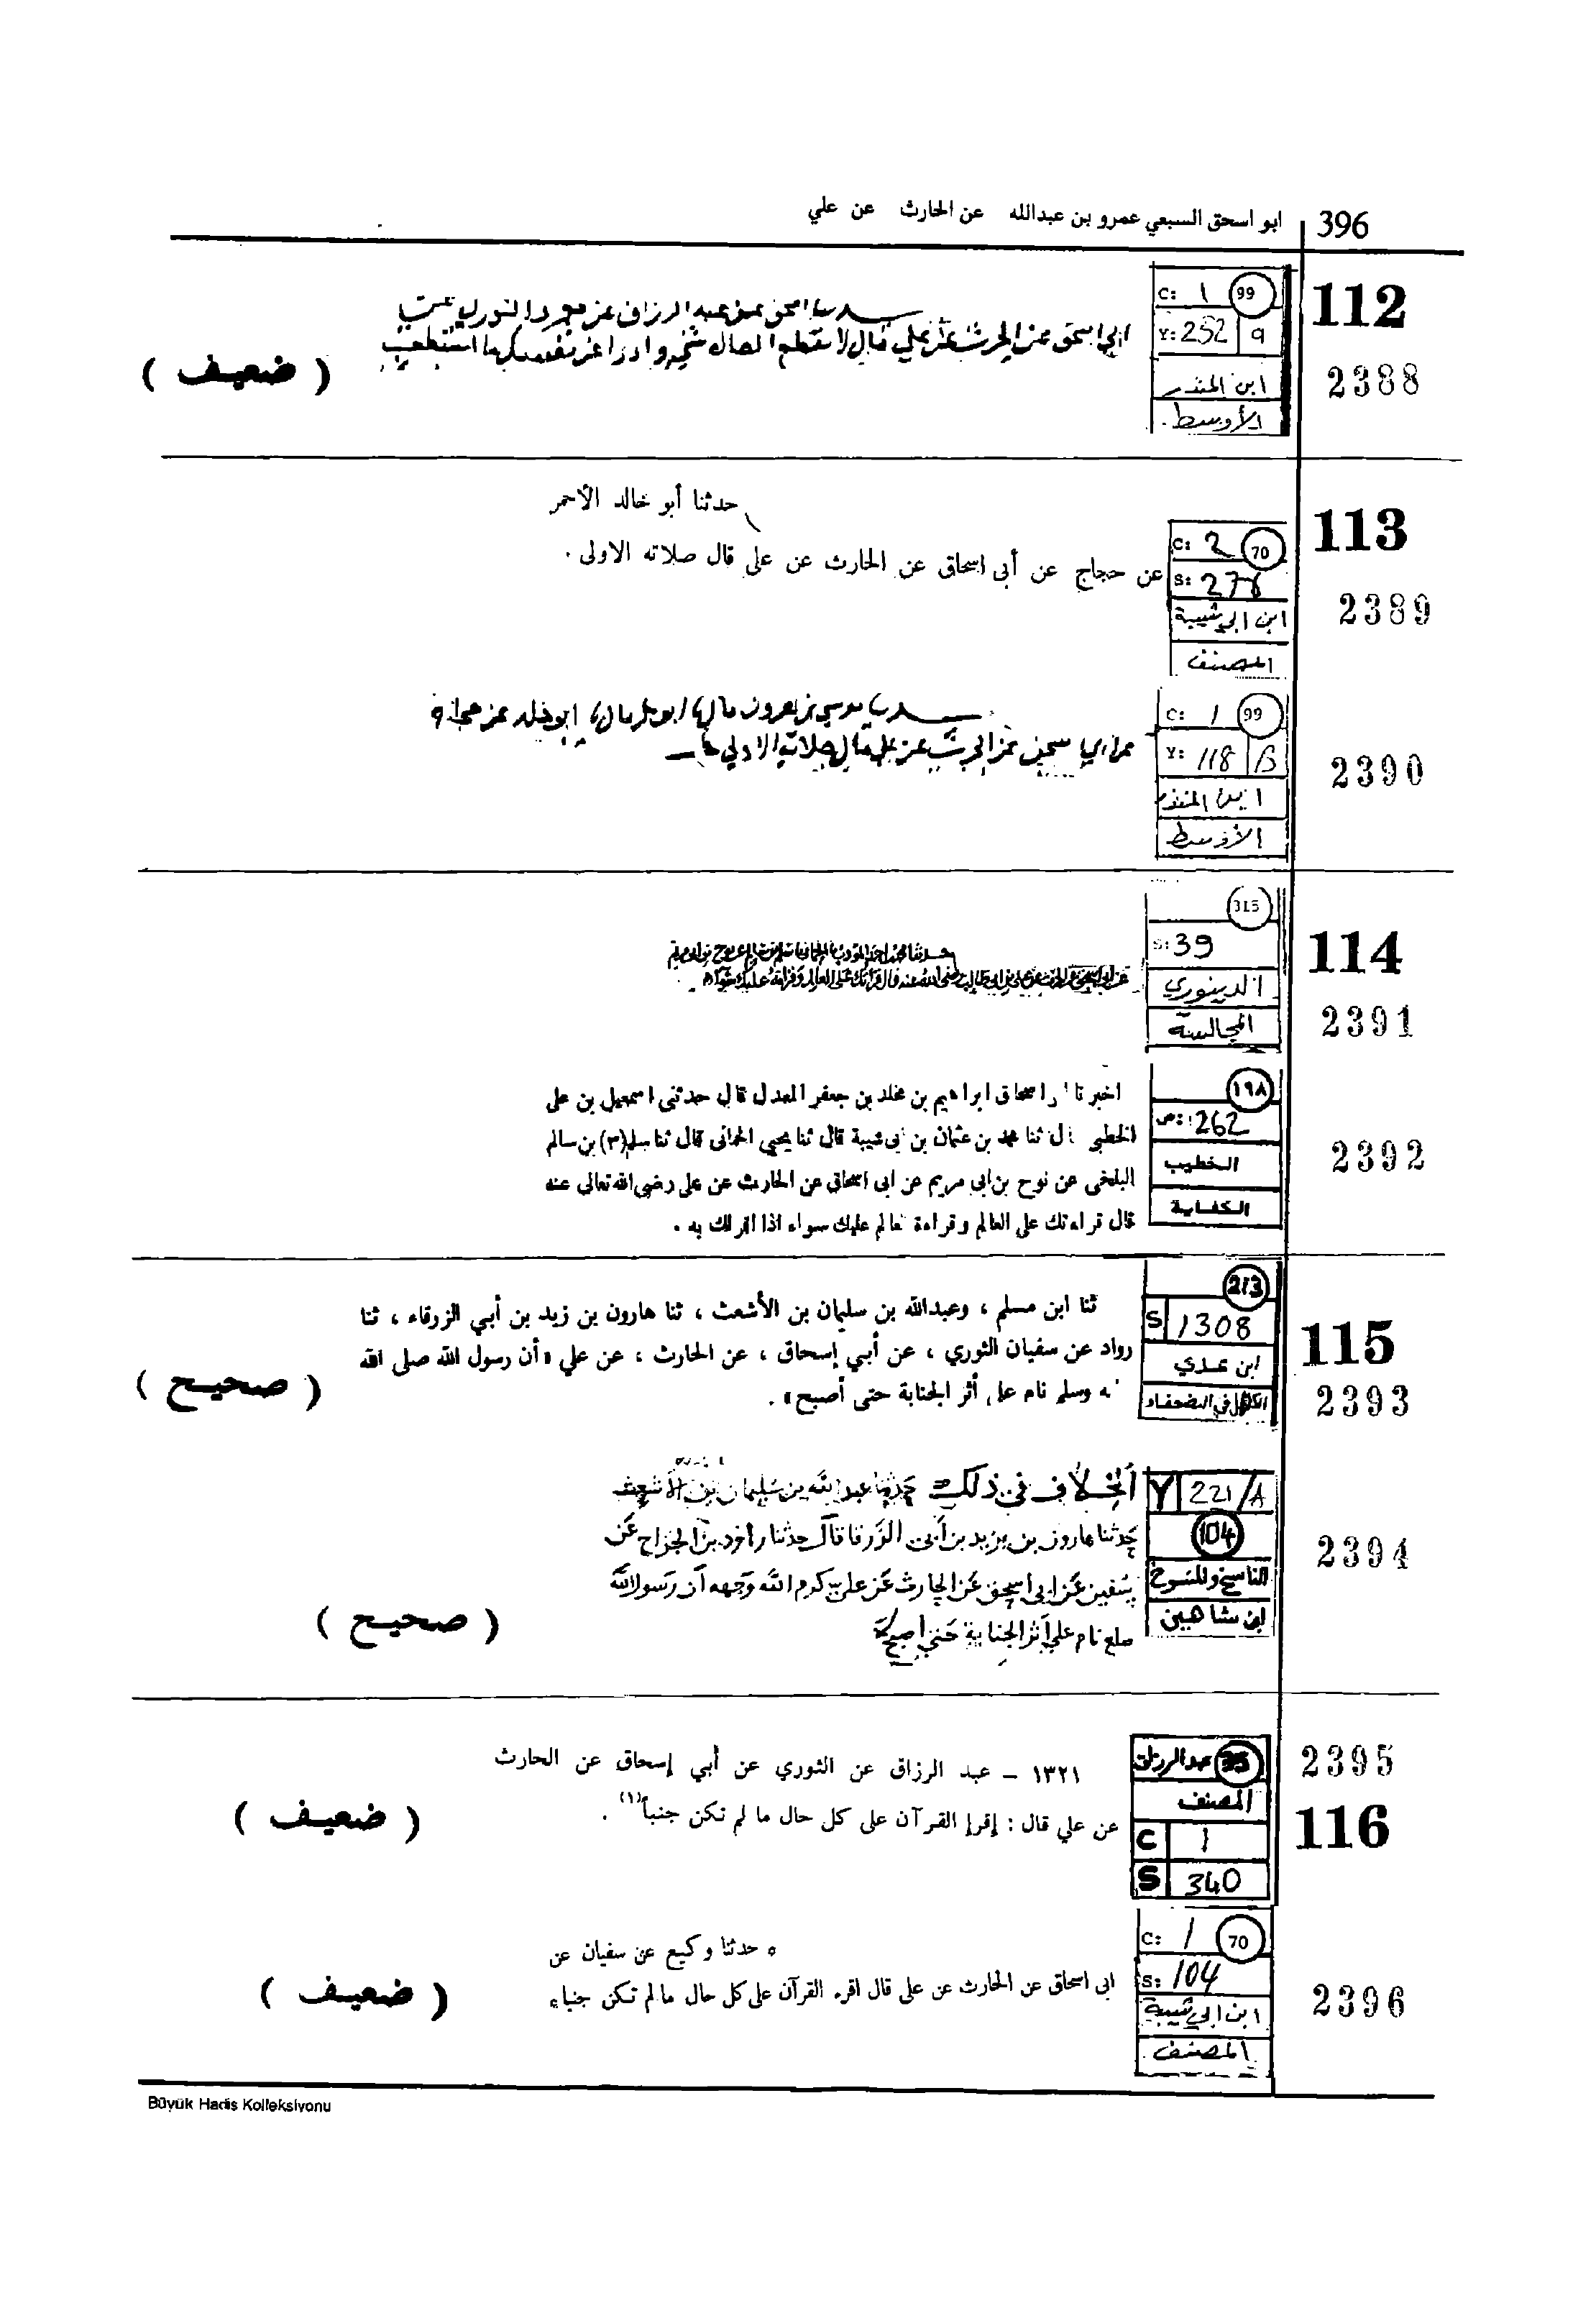 396 ابو اسحق السبعي عمرو بن عبدالله عن الحارث عن علي
112
2388
C: 1 99
Y: 252 9
ابن المنذر
الأوسط
عبد الرزاق عن
ابي اسحق عن الحرث عن علي قال لا يقطع الصلاة شيء وادرا عن نفسك ما استطعت
( ضعيف )
113
2389
C: 2 70
S: 278
ابن ابي شيبة
المصنف
حدثنا أبو خالد الأحمر
عن حجاج عن أبى اسحاق عن الحارث عن على قال صلاته الاولى .
2390
C: 1 99
Y: 118 B
ابن المنذر
الأوسط
عن علي قال صلاته الاولي
114
2391
315
S: 39
الدينوري
المجالسة
2392
١٩٨
ص: 262
الخطيب
الكفاية
اخبرنا ابراهيم بن مخلد بن جعفر المعدل قال حدثنى اسمعيل بن على
الخطبي ثنا محمد بن عثمان بن ابى شيبة قال ثنا يحيى الحمانى قال ثنا سلم (٣) بن سالم
البلخى عن نوح بن ابى مريم عن ابى اسحاق عن الحارث عن على رضى الله تعالى عنه
قال قراءتك على العالم وقراءة العالم عليك سواء اذا اقر لك به .
115
2393
213
S 1308
ابن عدي
الكامل في الضعفاء
ثنا ابن مسلم ، وعبدالله بن سليمان بن الأشعث ، ثنا هارون بن زيد بن أبي الزرقاء ، ثنا
رواد عن سفيان الثوري ، عن أبي إسحاق ، عن الحارث ، عن علي « أن رسول الله صلى الله
وسلم نام على أثر الجنابة حتى أصبح » .
( صحيح )
2394
Y 221/A
104
الناسخ والمنسوخ
ابن شاهين
الخلاف في ذلك حدثنا عبد الله بن سليمان بن الأشعث
حدثنا هارون بن يزيد بن أبي الزرقا قال حدثنا رواد بن الجراح عن
سفين عن ابي اسحق عن الحارث عن علي كرم الله وجهه أن رسول الله
صلع نام على أثر الجنابة حتى أصبح
( صحيح )
2395
116
عبد الرزاق 35
المصنف
C 1
S 340
١٣٢١ – عبد الرزاق عن الثوري عن أبي إسحاق عن الحارث
عن علي قال : إقرإ القرآن على كل حال ما لم تكن جنباً (١) .
( ضعيف )
2396
C: 1 70
S: 104
ابن ابي شيبة
المصنف
• حدثنا وكيع عن سفيان عن
ابى اسحاق عن الحارث عن على قال اقرء القرآن على كل حال ما لم تكن جنبا •
( ضعيف )
Büyük Hadis Kolleksiyonu